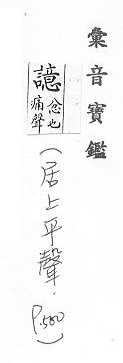 彙音寶鑑
譩 忿也
痛聲
(居上平聲.
P.580)